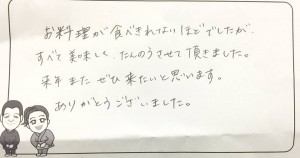 お料理が食べきれないほどでしたが、
すべて美味しく、たんのうさせて頂きました。
来年また ぜひ来たいと思います。
ありがとうございました。